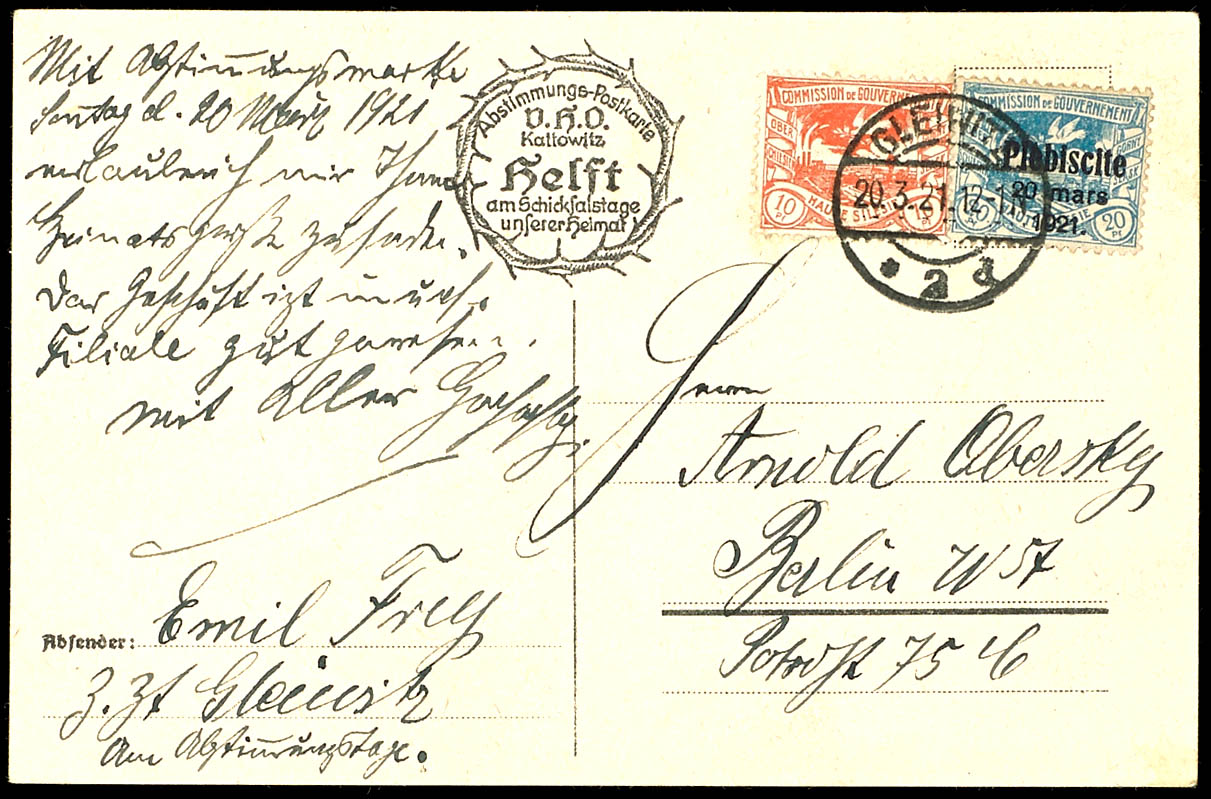 Mit Abstimmungsmarke
Sontag d. 20 März 1921
erlaube ich mir Ihnen
Heimatsgrüße zu senden.
Das Geschäft ist in uns.
Filiale gut gewesen.
mit aller Hochachtg.
Abstimmungs-Postkarte
V.H.O.
Kattowitz
Helft
am Schicksalstage
unserer Heimat
COMMISSION DE GOUVERNEMENT
OBER
HAUTE SILÉSIE
10 PF
10
COMMISSION DE GOUVERNEMENT
GORNY
ŚLĄSK
20 PF
Plébiscite
20 mars
1921.
GLEIWITZ
20.3.21. 12-1 N
* 2 d
Herrn
Arnold Obersky
Berlin W 57
75
Absender: Emil Frey
Z. Zt Gleiwitz
Am Abstimmungstage.